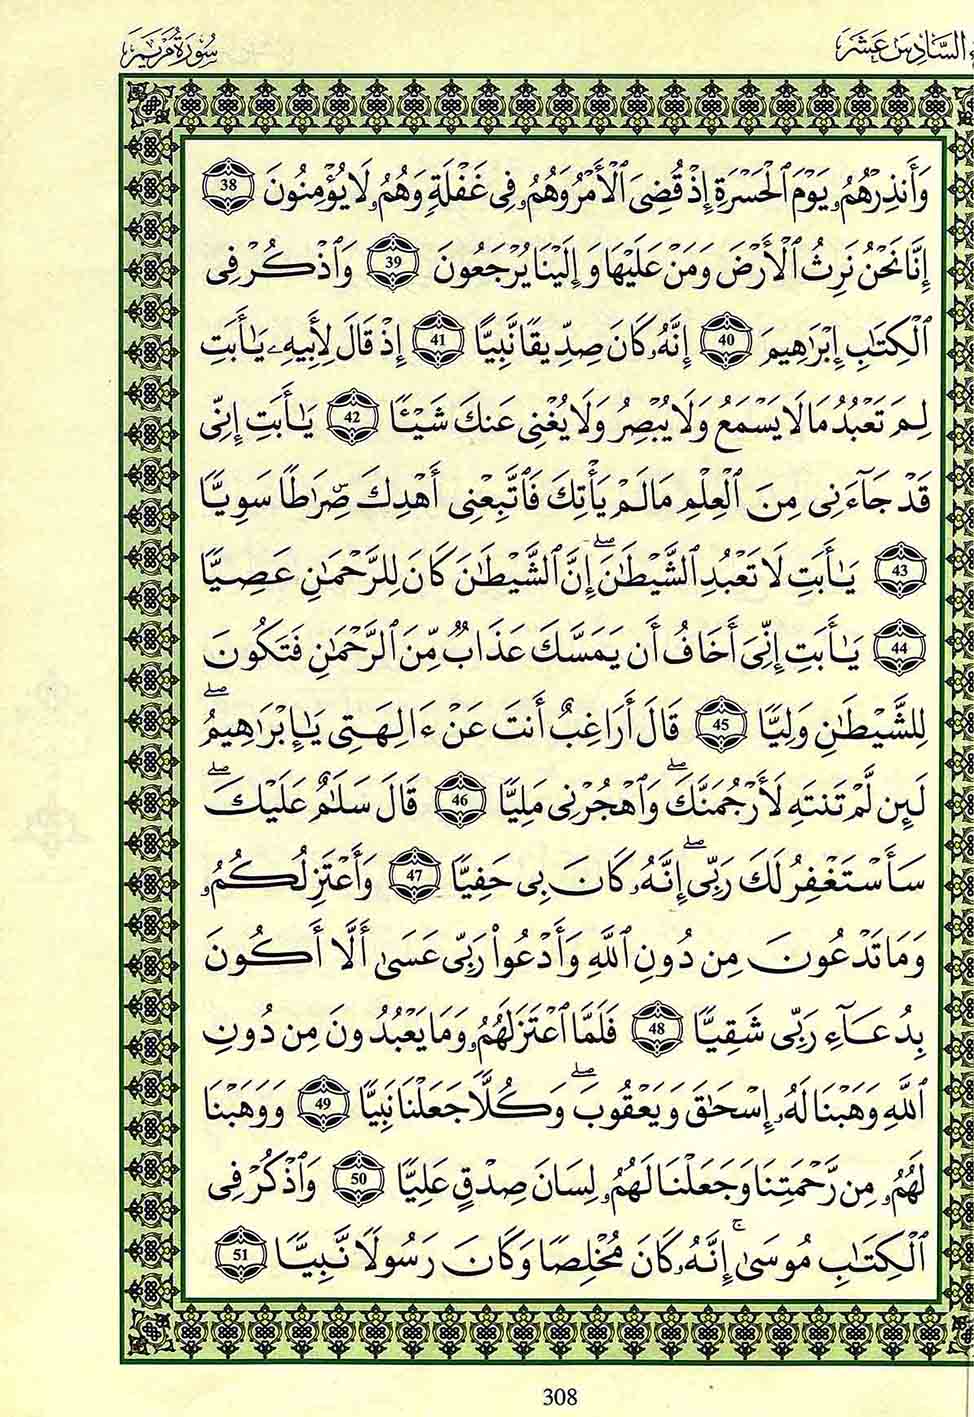 ء السَّادِسَ عَشَرَ
سُورَةُ مَرْيَمَ
وَأَنذِرْهُمُۥ يَوْمَ ٱلْحَسْرَةِ إِذْ قُضِيَ ٱلْأَمْرُ وَهُمُۥ فِى غَفْلَةٍ وَهُمُۥ لَا يُؤْمِنُونَ 38
إِنَّا نَحْنُ نَرِثُ ٱلْأَرْضَ وَمَنْ عَلَيْهَا وَإِلَيْنَا يُرْجَعُونَ 39 وَٱذْكُرْ فِى
ٱلْكِتَٰبِ إِبْرَٰهِيمَ 40 إِنَّهُۥ كَانَ صِدِّيقًا نَّبِيًّا 41 إِذْ قَالَ لِأَبِيهِ يَٰٓأَبَتِ
لِمَ تَعْبُدُ مَا لَا يَسْمَعُ وَلَا يُبْصِرُ وَلَا يُغْنِى عَنكَ شَيْـًٔا 42 يَٰٓأَبَتِ إِنِّى
قَدْ جَآءَنِى مِنَ ٱلْعِلْمِ مَا لَمْ يَأْتِكَ فَٱتَّبِعْنِى أَهْدِكَ صِرَٰطًا سَوِيًّا
43 يَٰٓأَبَتِ لَا تَعْبُدِ ٱلشَّيْطَٰنَ ۖ إِنَّ ٱلشَّيْطَٰنَ كَانَ لِلرَّحْمَٰنِ عَصِيًّا
44 يَٰٓأَبَتِ إِنِّىَ أَخَافُ أَن يَمَسَّكَ عَذَابٌ مِّنَ ٱلرَّحْمَٰنِ فَتَكُونَ
لِلشَّيْطَٰنِ وَلِيًّا 45 قَالَ أَرَاغِبٌ أَنتَ عَنْ ءَالِهَتِى يَٰٓإِبْرَٰهِيمُ ۖ
لَئِن لَّمْ تَنتَهِ لَأَرْجُمَنَّكَ ۖ وَٱهْجُرْنِى مَلِيًّا 46 قَالَ سَلَٰمٌ عَلَيْكَ ۖ
سَأَسْتَغْفِرُ لَكَ رَبِّىٓ ۖ إِنَّهُۥ كَانَ بِى حَفِيًّا 47 وَأَعْتَزِلُكُمُۥ
وَمَا تَدْعُونَ مِن دُونِ ٱللَّهِ وَأَدْعُوا۟ رَبِّى عَسَىٰٓ أَلَّا أَكُونَ
بِدُعَآءِ رَبِّى شَقِيًّا 48 فَلَمَّا ٱعْتَزَلَهُمُۥ وَمَا يَعْبُدُونَ مِن دُونِ
ٱللَّهِ وَهَبْنَا لَهُۥ إِسْحَٰقَ وَيَعْقُوبَ ۖ وَكُلًّا جَعَلْنَا نَبِيًّا 49 وَوَهَبْنَا
لَهُمُۥ مِن رَّحْمَتِنَا وَجَعَلْنَا لَهُمُۥ لِسَانَ صِدْقٍ عَلِيًّا 50 وَٱذْكُرْ فِى
ٱلْكِتَٰبِ مُوسَىٰٓ ۚ إِنَّهُۥ كَانَ مُخْلِصًا وَكَانَ رَسُولًا نَّبِيًّا 51
308